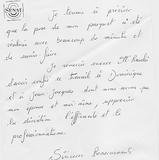 SENAT
Je tenais à préciser
que la pose de mon parquet a été
réalisée avec beaucoup de minutie et
de savoir faire
Je remercie encore
d'avoir confié ce travail à Dominique
et à Jean Jacques dont nous avons pu
mon épouse et moi même, apprécier
la discrétion l'efficacité et le
professionnalisme.
Sincères Remerciements